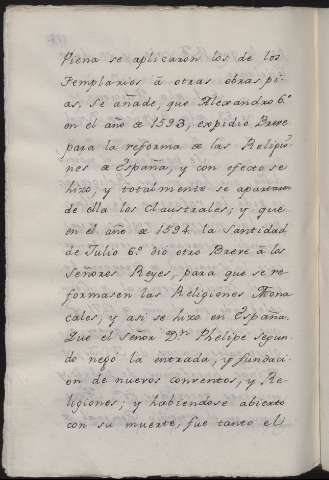 Viena se aplicaron los de los
Templarios à otras obras pi-
as. Se añade, que Alexandro 6.º
en el año de 1593, expidió Breve
para la reforma de las Religio-
nes de España, y con efecto se
hizo, y totalmente se apartaron
de ella los Claustrales; y que
en el año de 1594. la Santidad
de Julio 6.º dio otro Breve à los
Señores Reyes, para que se re-
formasen las Religiones Mona-
cales, y asi se hizo en España.
Que el Señor D.n Phelipe segun-
do negó la entrada, y fundaci-
on de nuevos conventos, y Re-
ligiones; y habiendose abierto
con su muerte, fue tanto el